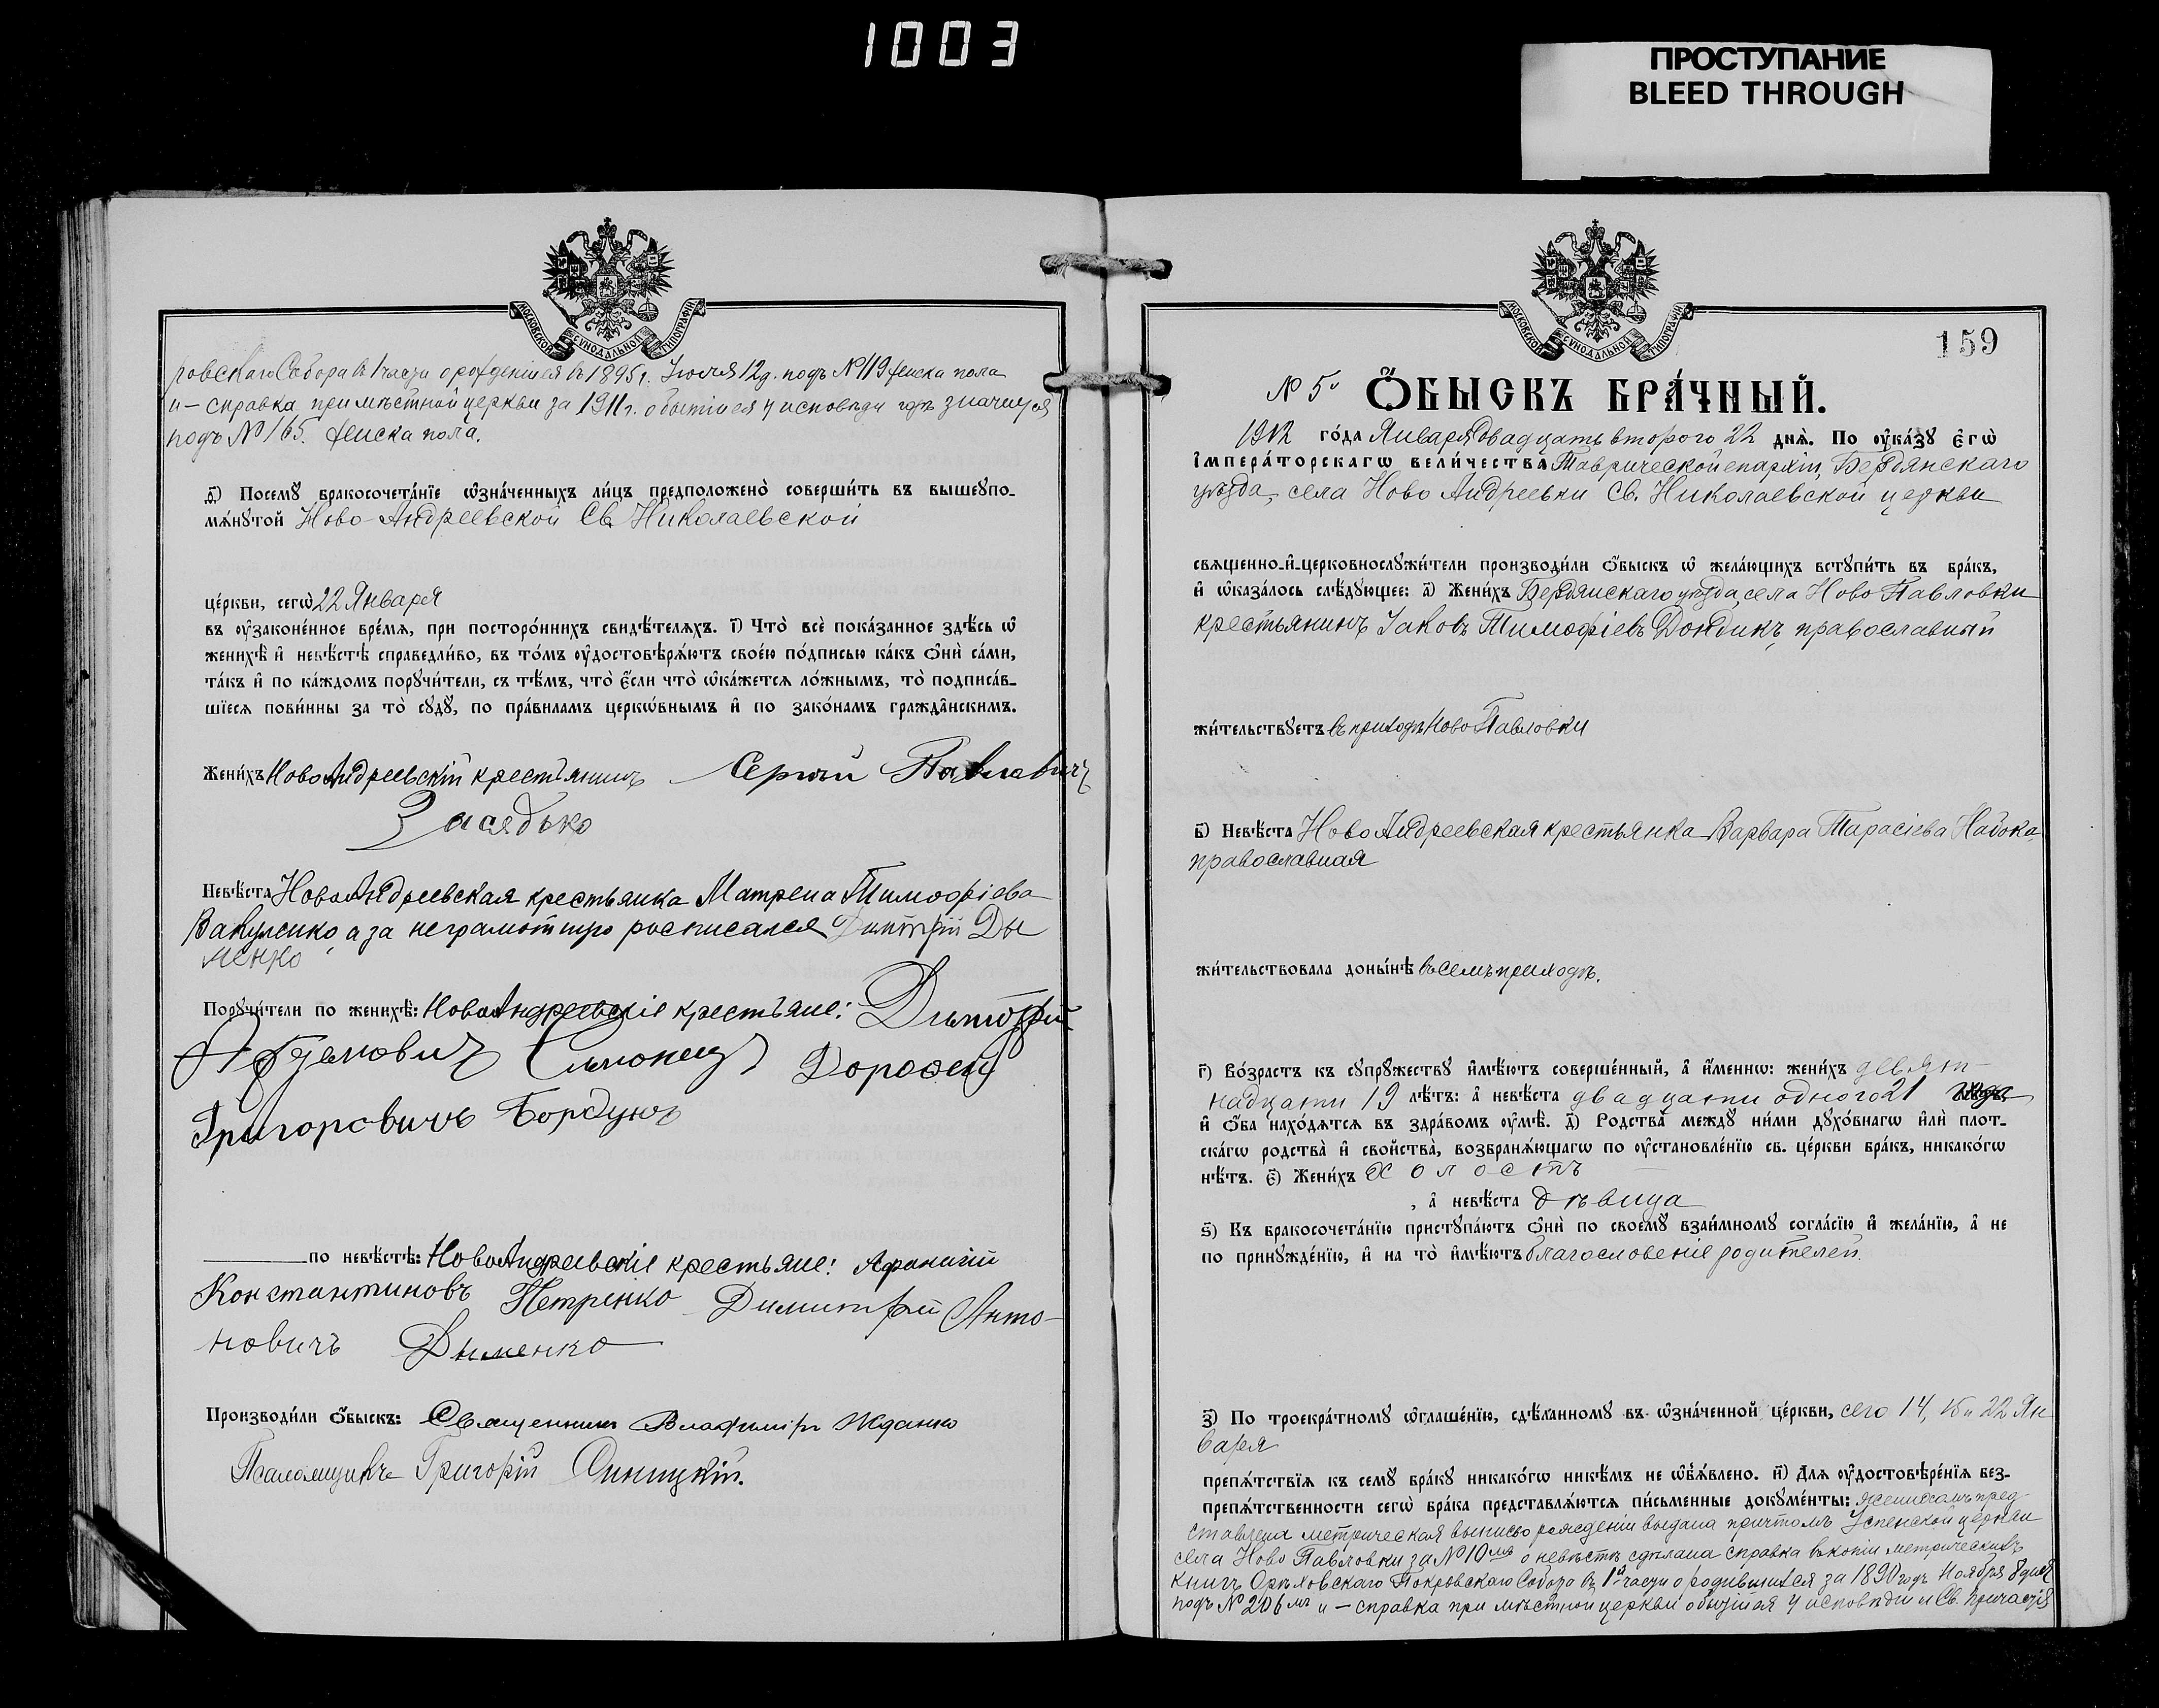 1003
ПРОСТУПАНИЕ
BLEED THROUGH
МОСКОВСКОЙ СѴНОДАЛЬНОЙ ТИПОГРАФІИ
ровскаго Собора въ 1 части о рожденшейся въ 1895 г. Іюля 12 д. подъ №119 женска пола
и – справка при мѣстной церкви за 1911 г. о бытіи ея у исповѣди гдѣ значится
подъ №165. женска пола.
д҃) Посемꙋ бракосочета́нїе ѡ҆зна́ченныхъ ли́цъ предположено̀ соверши́ть въ вышеꙋпо-
мѧ́нꙋтой Ново-Андреевской Св. Николаевской
це́ркви, сегѡ̀ 22 Января
въ ᲂу҆законе́нное вре́мѧ, при посторо́ннихъ свидѣ́телѧхъ. і҃) Что̀ всѐ пока́занное здѣ́сь ѡ҆
женихѣ̀ и҆ невѣ́стѣ справедли́во, въ то́мъ ᲂу҆достовѣрѧ́ютъ свое́ю по́дписью ка́къ ѻ҆нѝ са́ми,
та́къ и҆ по ка́ждомъ порꙋчи́тели, съ тѣ́мъ, что̀ є҆́сли что̀ ѡ҆ка́жетсѧ ло́жнымъ, то̀ подписа́в-
шїесѧ пови́нны за то̀ сꙋдꙋ̀, по пра́виламъ церкѡ́внымъ и҆ по зако́намъ гражда̑нскимъ.
Жени́хъ Ново Андреевскій крестьянинъ Сергѣй Павловичъ
Засядько
Невѣ́ста Ново Андреевская крестьянка Матрена Тимофіева
Вакуленко, а за неграмотную росписался Димтрій Ды
менко
Порꙋчи́тели по женихѣ̀: Ново Андреевскіе крестьяне: Дмитрій
Дорофей
Григоровичъ Бордунъ
по невѣ́стѣ: Ново Андреевскіе крестьяне: Афанасій
Константиновъ Петренко Димитрій Анто-
новичъ Дыменко
Производи́ли ѻ҆́быскъ: Священникъ Владиміръ Жданко
Псаломщикъ Григорій Синицкій.
МОСКОВСКОЙ СѴНОДАЛЬНОЙ ТИПОГРАФІИ
159
№ 5й Ѻ҆́БЫСКЪ БРА́ЧНЫЙ.
1912 го́да Января двадцать второго 22 днѧ̀. По ᲂу҆ка́зꙋ Є҆гѡ̀
І҆мпера́торскагѡ вели́чества Таврической епархіи, Бердянскаго
уѣзда, села Ново Андреевки Св. Николаевской церкви
свѧщенно-и҆-церковнослꙋжи́тели производи́ли ѻ҆́быскъ ѡ҆ жела́ющихъ встꙋпи́ть въ бра́къ,
и҆ ѡ҆каза́лось слѣ́дꙋющее: а҃) Жени́хъ Бердянскаго уѣзда, села Ново Павловки
крестьянинъ Іаковъ Тимофіевъ Дондикъ, православный
жи́тельствꙋетъ въ приходѣ Ново Павловки
в҃) Невѣ́ста Ново Андреевская крестьянка Варвара Тарасіева Набока,
православная
жи́тельствовала доны́нѣ въ семъ приходѣ.
г҃) Во́зрастъ къ сꙋпрꙋ́жествꙋ и҆мѣ́ютъ соверше́нный, а҆ и҆́меннѡ: жени́хъ девят-
надцати 19 лѣ́тъ: а҆ невѣ́ста двадцати одного 21
и҆ ѻ҆́ба нахо́дѧтсѧ въ здра́вомъ ᲂу҆мѣ̀. д҃) Родства̀ междꙋ̀ ни́ми дꙋхо́внагѡ и҆лѝ плот-
ска́гѡ родства̀ и҆ сво́йства̀, возбранѧ́ющагѡ по ᲂу҆становле́нїю св. це́ркви бра́къ, никако́гѡ
нѣ́тъ. є҃) Жени́хъ Холостъ
, а҆ невѣ́ста дѣвица
ѕ҃) Къ бракосочета́нїю пристꙋпа́ютъ ѻ҆нѝ по своемꙋ̀ взаи́мномꙋ согла́сїю и҆ жела́нїю, а҆ не
по принꙋжде́нїю, и҆ на то̀ и҆мѣ́ютъ благословеніе родителей.
з҃) По троекра́тномꙋ ѡ҆глаше́нїю, сдѣ́ланномꙋ въ ѡ҆зна́ченной це́ркви, сего 14, 15 и 22 Ян
варя
препѧ́тствїѧ къ семꙋ̀ бра́кꙋ никако́гѡ никѣ́мъ не ѡ҆б̾ѧ́влено. и҃) Длѧ ᲂу҆достовѣре́нїѧ без-
препѧ́тственности сегѡ̀ бра́ка представлѧ́ютсѧ пи́сьменные докꙋме́нты: женихомъ пред-
ставлена метрическая выпись о рожденіи выдана причтомъ Успенской церкви
села Ново Павловки за №10мъ о невѣстѣ сдѣлана справка въ копіи метрическихъ
книгъ Орѣховскаго Покровскаго Собора въ 1й части о родившихся за 1890 годъ Ноября 8 дня
подъ №206мъ и – справка при мѣстной церкви о бытіи ея у исповѣди и Св. Причастія